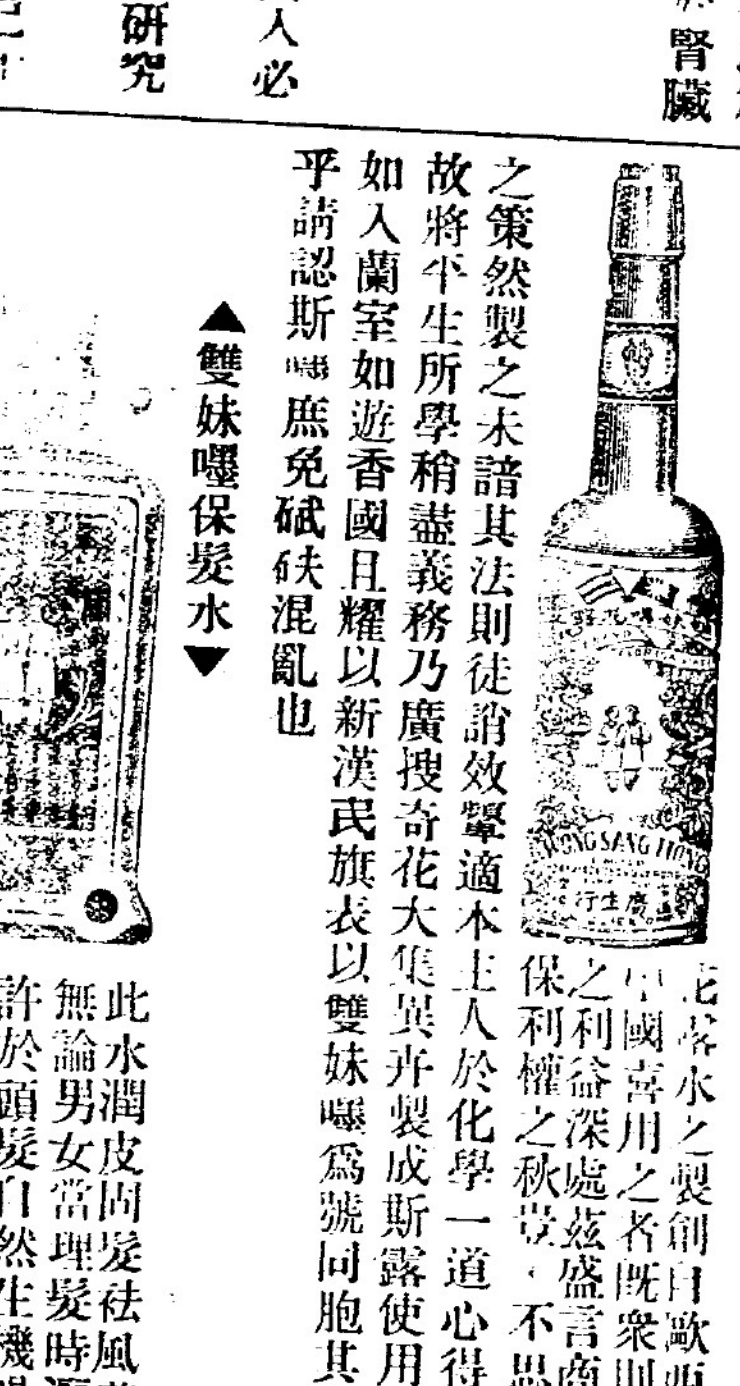 腎臟
人必
研究
水之製創自歐西
中國喜用之者既衆則
之利益深處茲盛言商
保利權之秋豈可不思
之策然製之未諳其法則徒誚效顰適本主人於化學一道心得
故將平生所學稍盡義務乃廣搜奇花大集異卉製成斯露使用
如入蘭室如遊香國且耀以新漢民旗表以雙妹嚜爲號同胞其
乎請認斯嚜庶免碔砆混亂也
KWONG SANG HONG
行生廣
▲雙妹嚜保髮水▼
此水潤皮固髮祛風
無論男女當理髮時
許於頭髮自然生機